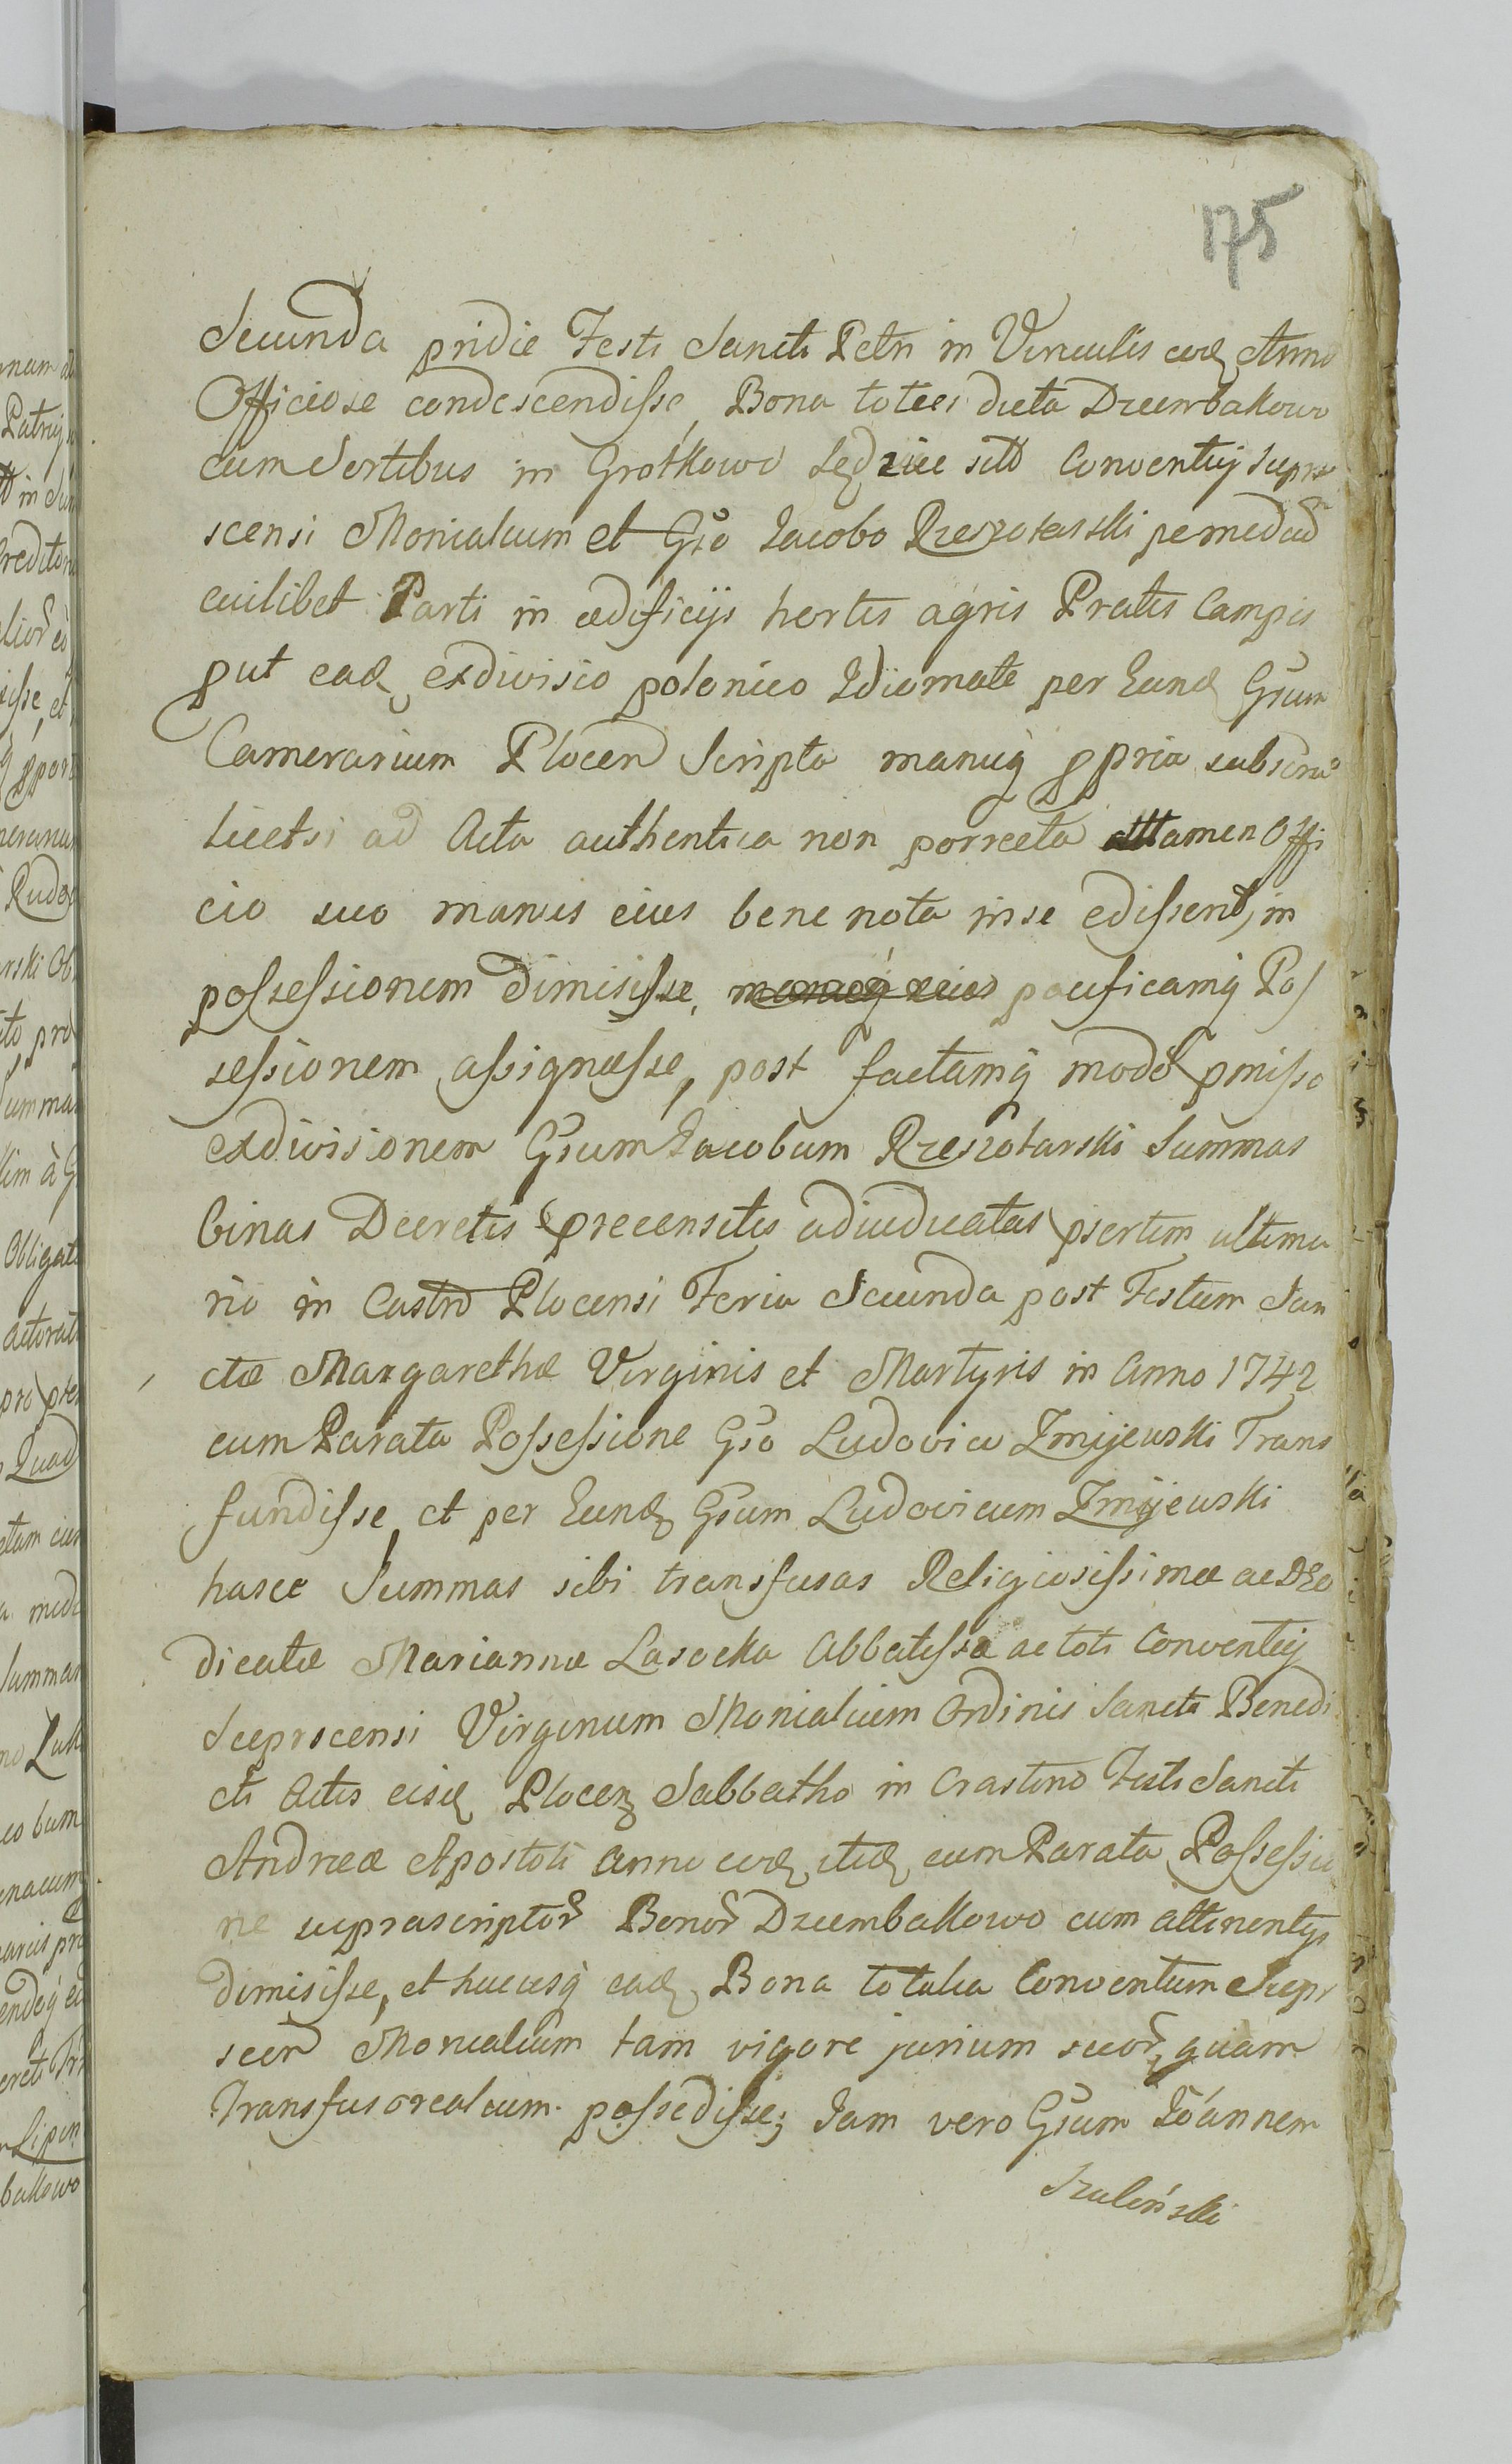 175
Secunda pridie Festi Sancti Petri in Vinculis eod Anno
Officiose condescendisse, Bona toties dicta Dzembakowo
cum Sortibus in Grotkowo Sędzice sitt Conventuj Sierp
scensi Monialium et Gso Jacobo Rzeszotarski pemedied
cuilibet Parti in ædificijs hortis agris Pratis Campis
put ead exdivisio polonico Idiomate per Eund Gsum
Camerarium Plocen Scripta manuq ppria subscrip
licetsi ad Acta authentica non porrecta attamen Offi
cio suo manus eius bene nota in se edisserit, in
possessionem dimisisse, pacificamq Pos
sessionem assignasse, post factamq modo pmisso
exdivisionem Gsum Jacobum Rzeszotarski Summas
binas Decretis precensitis adiudicatas psertim ultima
rio in Castro Plocensi Feria Secunda post Festum San
ctæ Margarethæ Virginis et Martyris in Anno 1742
cum Parata Possessione Gso Ludovico Zmijewski Trans
fundisse et per Eund Gsum Ludovicum Zmijewski
hasce Summas sibi transfusas Religiosissimæ ac DEo
dicatæ Mariannæ Lasocka Abbatissæ ac toti Conventuj
Sierpscensi Virginum Monialium Ordinis Sancti Benedi
cti Actis eisd Plocen Sabbatho in Crastino Festi Sancti
Andreæ Apostoli anno eod itid cum Parata Possessio
ne suprascriptor Bonor Dziembakowo cum attinentijs
dimisisse, et hucusq ead Bona totalia Conventum Sierp
scen Monialium tam vigore jurium suor quam
Transfusorealium possedisse; Jam vero Gsum Joannem
Szuliński